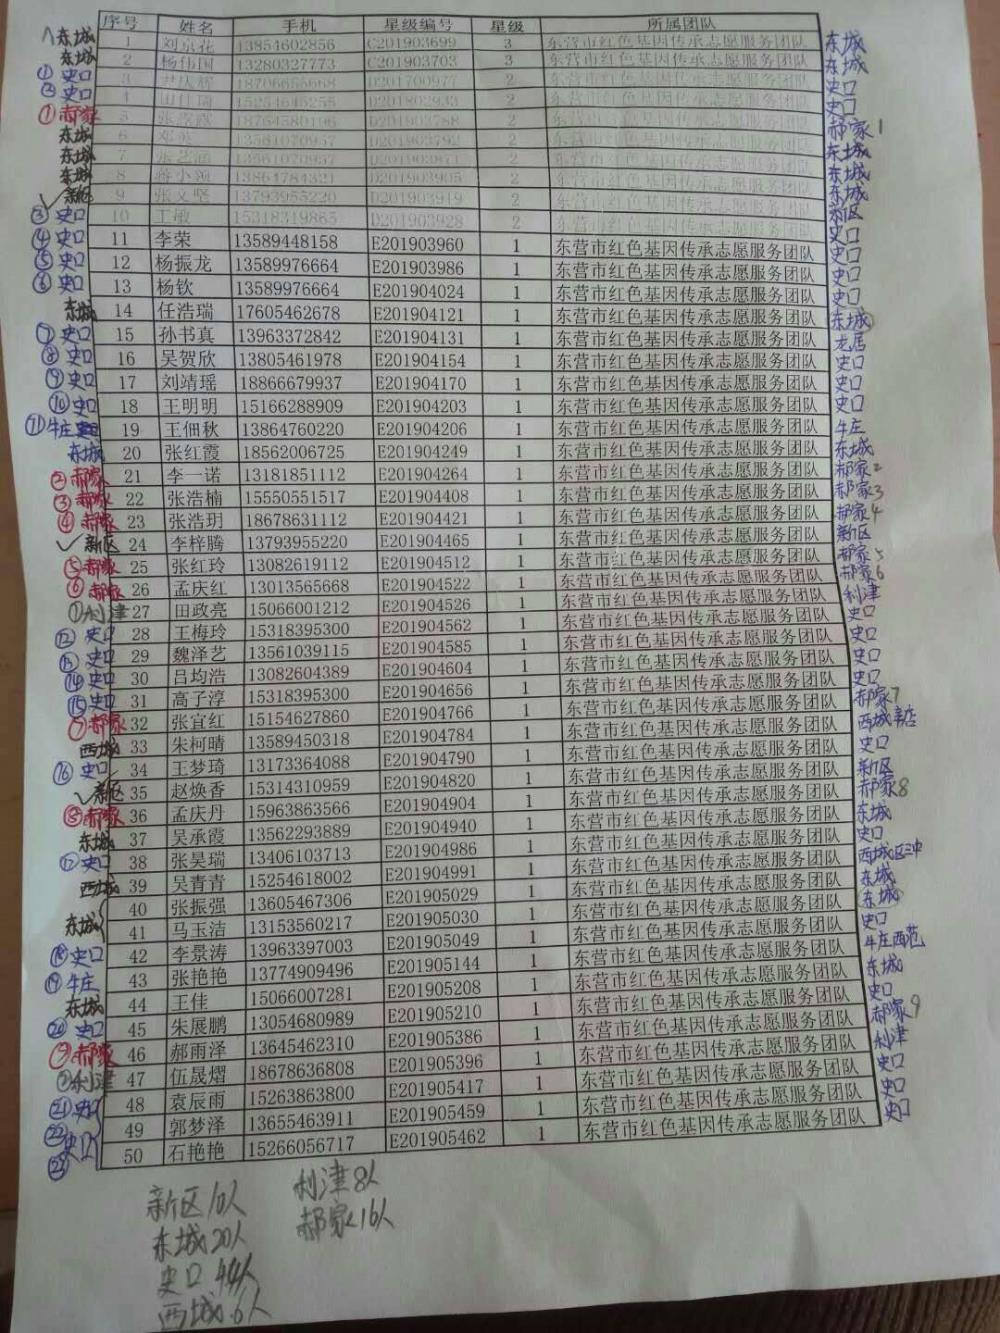 序号 姓名 手机 星级编号 星级 所属团队
东城 1 刘京花 13854602856 C201903699 3 东营市红色基因传承志愿服务团队 东城
东城 2 杨伟国 13280327773 C201903703 3 东营市红色基因传承志愿服务团队 东城
① 史口 3 D201700977 2 东营市红色基因传承志愿服务团队 史口
② 史口 4 2 东营市红色基因传承志愿服务团队 史口
① 郝家 5 18764580196 D201903788 2 东营市红色基因传承志愿服务团队 郝家1
东城 6 D201903792 2 东营市红色基因传承志愿服务团队 东城
东城 7 2 东营市红色基因传承志愿服务团队 东城
东城 8 13864784321 D201903905 2 东营市红色基因传承志愿服务团队 东城
✓ 新区 9 张文坚 13793955220 D201903919 2 东营市红色基因传承志愿服务团队 新区
③ 史口 10 王敏 15318319865 D201903928 2 东营市红色基因传承志愿服务团队 史口
④ 史口 11 李荣 13589448158 E201903960 1 东营市红色基因传承志愿服务团队 史口
⑤ 史口 12 杨振龙 13589976664 E201903986 1 东营市红色基因传承志愿服务团队 史口
⑥ 史口 13 杨钦 13589976664 E201904024 1 东营市红色基因传承志愿服务团队 史口
东城 14 任浩瑞 17605462678 E201904121 1 东营市红色基因传承志愿服务团队 东城
⑦ 史口 15 孙书真 13963372842 E201904131 1 东营市红色基因传承志愿服务团队 龙居
⑧ 史口 16 吴贺欣 13805461978 E201904154 1 东营市红色基因传承志愿服务团队 史口
⑨ 史口 17 刘靖瑶 18866679937 E201904170 1 东营市红色基因传承志愿服务团队 史口
⑩ 史口 18 王明明 15166288909 E201904203 1 东营市红色基因传承志愿服务团队 史口
⑪ 牛庄 19 王佃秋 13864760220 E201904206 1 东营市红色基因传承志愿服务团队 牛庄
东城 20 张红霞 18562006725 E201904249 1 东营市红色基因传承志愿服务团队 东城
② 郝家 21 李一诺 13181851112 E201904264 1 东营市红色基因传承志愿服务团队 郝家2
③ 郝家 22 张浩楠 15550551517 E201904408 1 东营市红色基因传承志愿服务团队 郝家3
④ 郝家 23 张浩玥 18678631112 E201904421 1 东营市红色基因传承志愿服务团队 郝家4
✓ 新区 24 李梓腾 13793955220 E201904465 1 东营市红色基因传承志愿服务团队 新区
⑤ 郝家 25 张红玲 13082619112 E201904512 1 东营市红色基因传承志愿服务团队 郝家5
⑥ 郝家 26 孟庆红 13013565668 E201904522 1 东营市红色基因传承志愿服务团队 郝家6
① 利津 27 田政亮 15066001212 E201904526 1 东营市红色基因传承志愿服务团队 利津
⑫ 史口 28 王梅玲 15318395300 E201904562 1 东营市红色基因传承志愿服务团队 史口
⑬ 史口 29 魏泽艺 13561039115 E201904585 1 东营市红色基因传承志愿服务团队 史口
⑭ 史口 30 吕均浩 13082604389 E201904604 1 东营市红色基因传承志愿服务团队 史口
⑮ 史口 31 高子淳 15318395300 E201904656 1 东营市红色基因传承志愿服务团队 史口
⑦ 郝家 32 张宜红 15154627860 E201904766 1 东营市红色基因传承志愿服务团队 郝家7
西城 33 朱柯晴 13589450318 E201904784 1 东营市红色基因传承志愿服务团队 西城
⑯ 史口 34 王梦琦 13173364088 E201904790 1 东营市红色基因传承志愿服务团队 史口
✓ 新区 35 赵焕香 15314310959 E201904820 1 东营市红色基因传承志愿服务团队 新区
⑧ 郝家 36 孟庆丹 15963863566 E201904904 1 东营市红色基因传承志愿服务团队 郝家8
东城 37 吴承霞 13562293889 E201904940 1 东营市红色基因传承志愿服务团队 东城
⑰ 史口 38 张昊瑞 13406103713 E201904986 1 东营市红色基因传承志愿服务团队 史口
西城 39 吴青青 15254618002 E201904991 1 东营市红色基因传承志愿服务团队 西城区二中
40 张振强 13605467306 E201905029 1 东营市红色基因传承志愿服务团队 东城
东城 41 马玉洁 13153560217 E201905030 1 东营市红色基因传承志愿服务团队 东城
⑱ 史口 42 李景涛 13963397003 E201905049 1 东营市红色基因传承志愿服务团队 史口
⑲ 牛庄 43 张艳艳 13774909496 E201905144 1 东营市红色基因传承志愿服务团队 牛庄西范
东城 44 王佳 15066007281 E201905208 1 东营市红色基因传承志愿服务团队 东城
⑳ 史口 45 朱展鹏 13054680989 E201905210 1 东营市红色基因传承志愿服务团队 史口
⑨ 郝家 46 郝雨泽 13645462310 E201905386 1 东营市红色基因传承志愿服务团队 郝家9
② 利津 47 伍晟熠 18678636808 E201905396 1 东营市红色基因传承志愿服务团队 利津
㉑ 史口 48 袁辰雨 15263863800 E201905417 1 东营市红色基因传承志愿服务团队 史口
㉒ 史口 49 郭梦泽 13655463911 E201905459 1 东营市红色基因传承志愿服务团队 史口
㉓ 50 石艳艳 15266056717 E201905462 1 东营市红色基因传承志愿服务团队 史口
新区10人 利津8人
东城20人 郝家16人
史口44人
西城6人